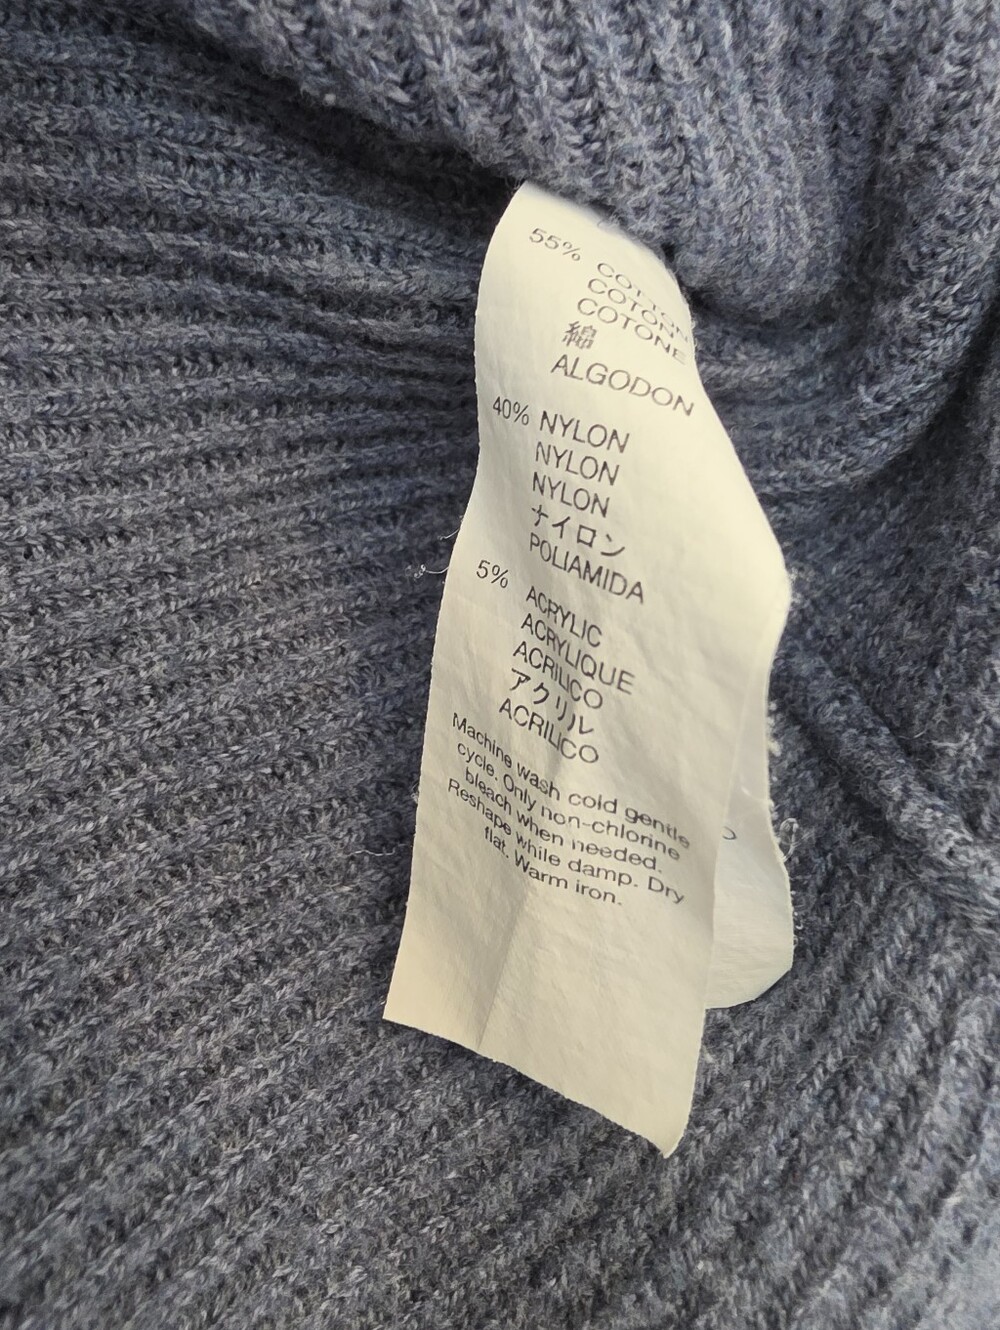 55% COTTON
COTONN
COTONE
綿
ALGODON
40% NYLON
NYLON
NYLON
ナイロン
POLIAMIDA
5% ACRYLIC
ACRYLIQUE
ACRILICO
アクリル
ACRILICO
Machine wash cold gentle
cycle. Only non-chlorine
bleach when needed.
Reshape while damp. Dry
flat. Warm iron.